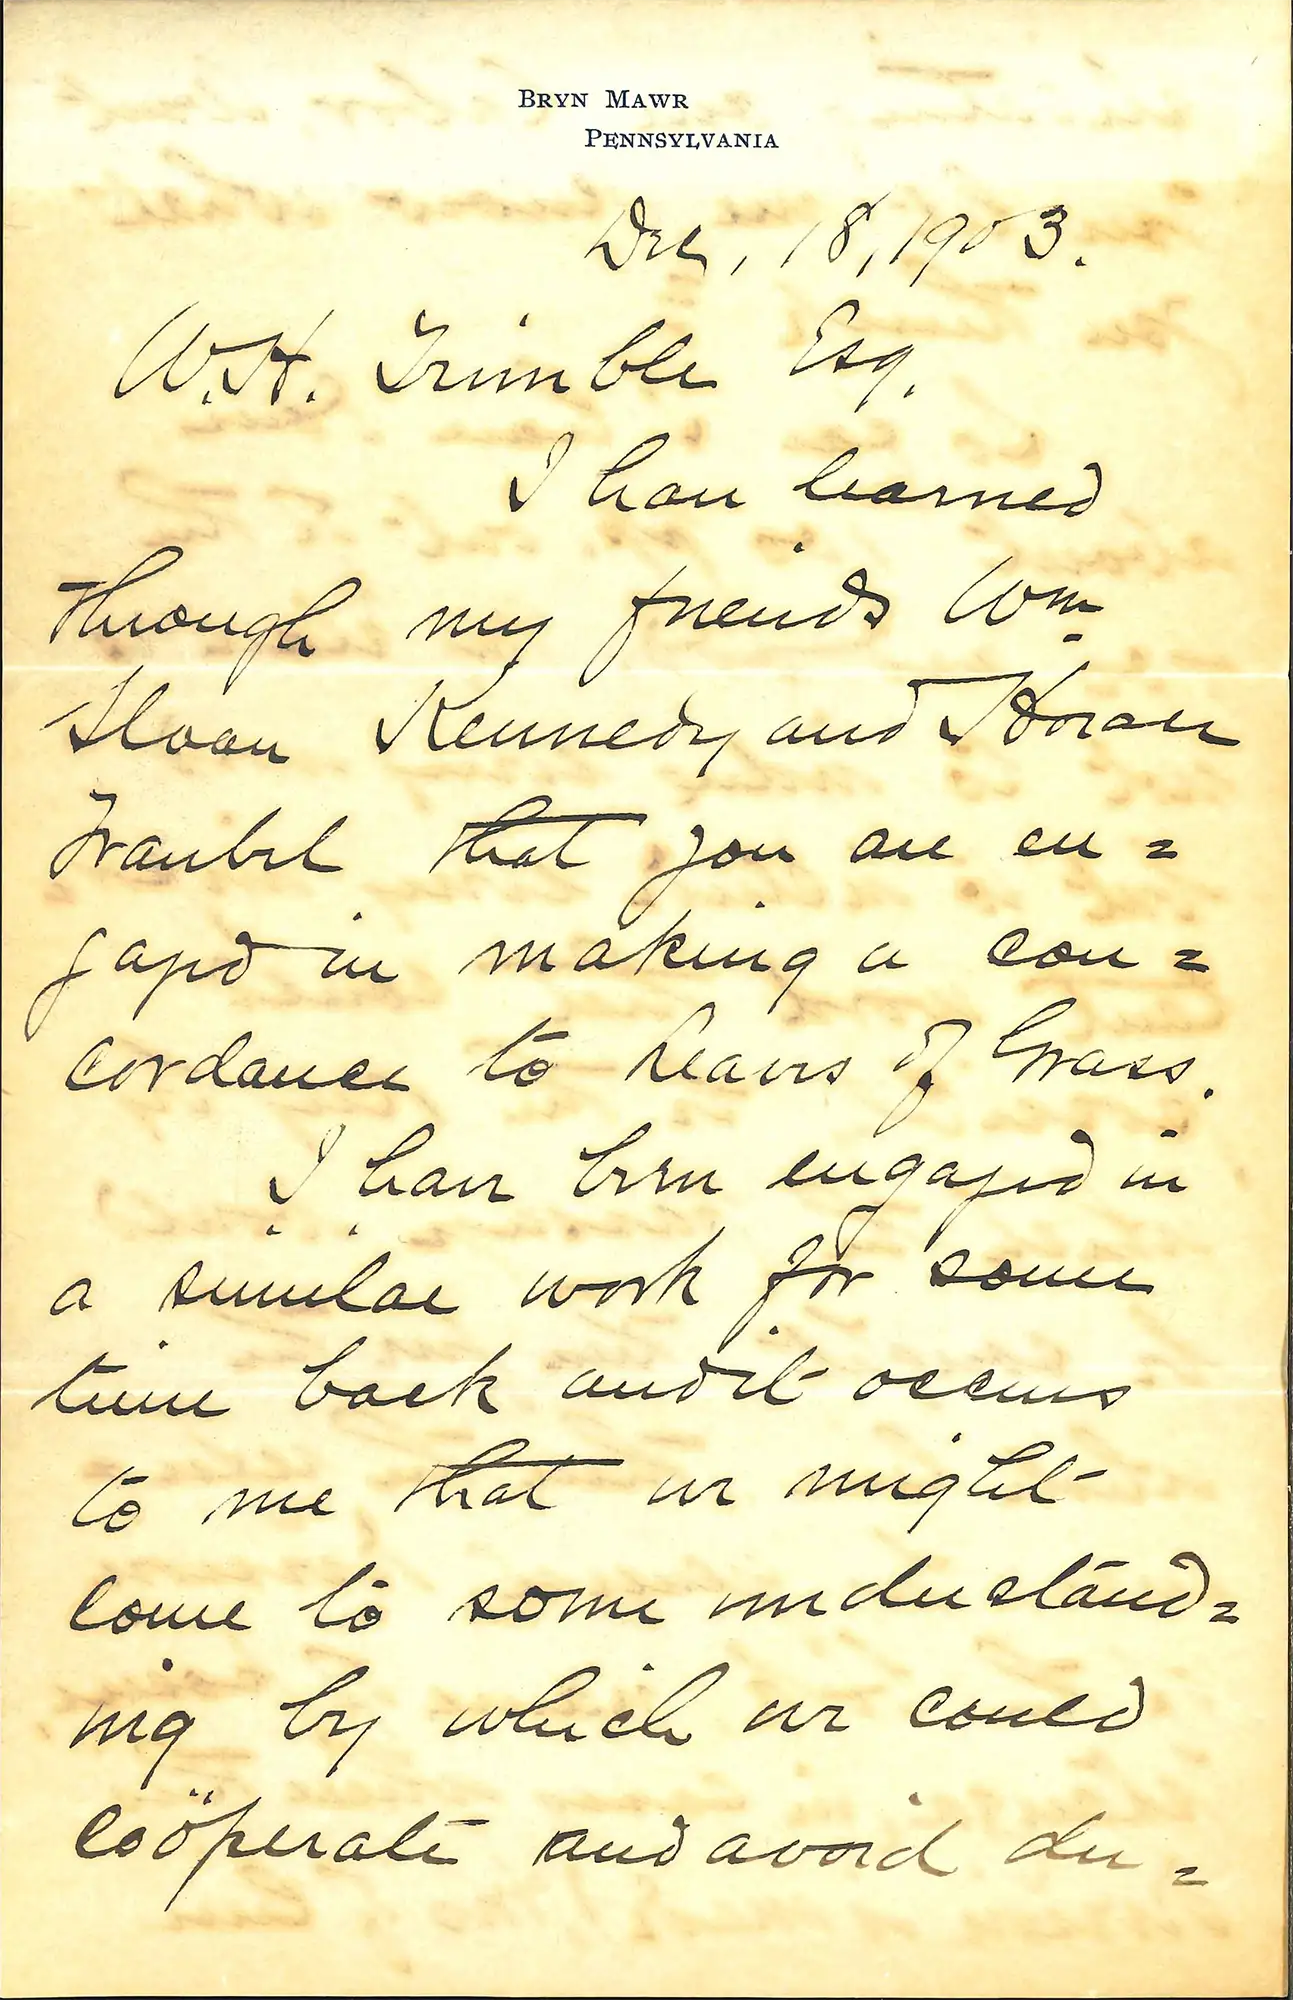 BRYN MAWR
PENNSYLVANIA
Dec, 18, 1903.
W. H. Trimble Esq.
I have learned
through my friends Wm
Sloan Kennedy and Horace
Traubel that you are en=
gaged in making a con=
cordance to Leaves of Grass.
I have been engaged in
a similar work for some
time back and it occurs
to me that we might
come to some understand=
ing by which we could
coöperate and avoid du=